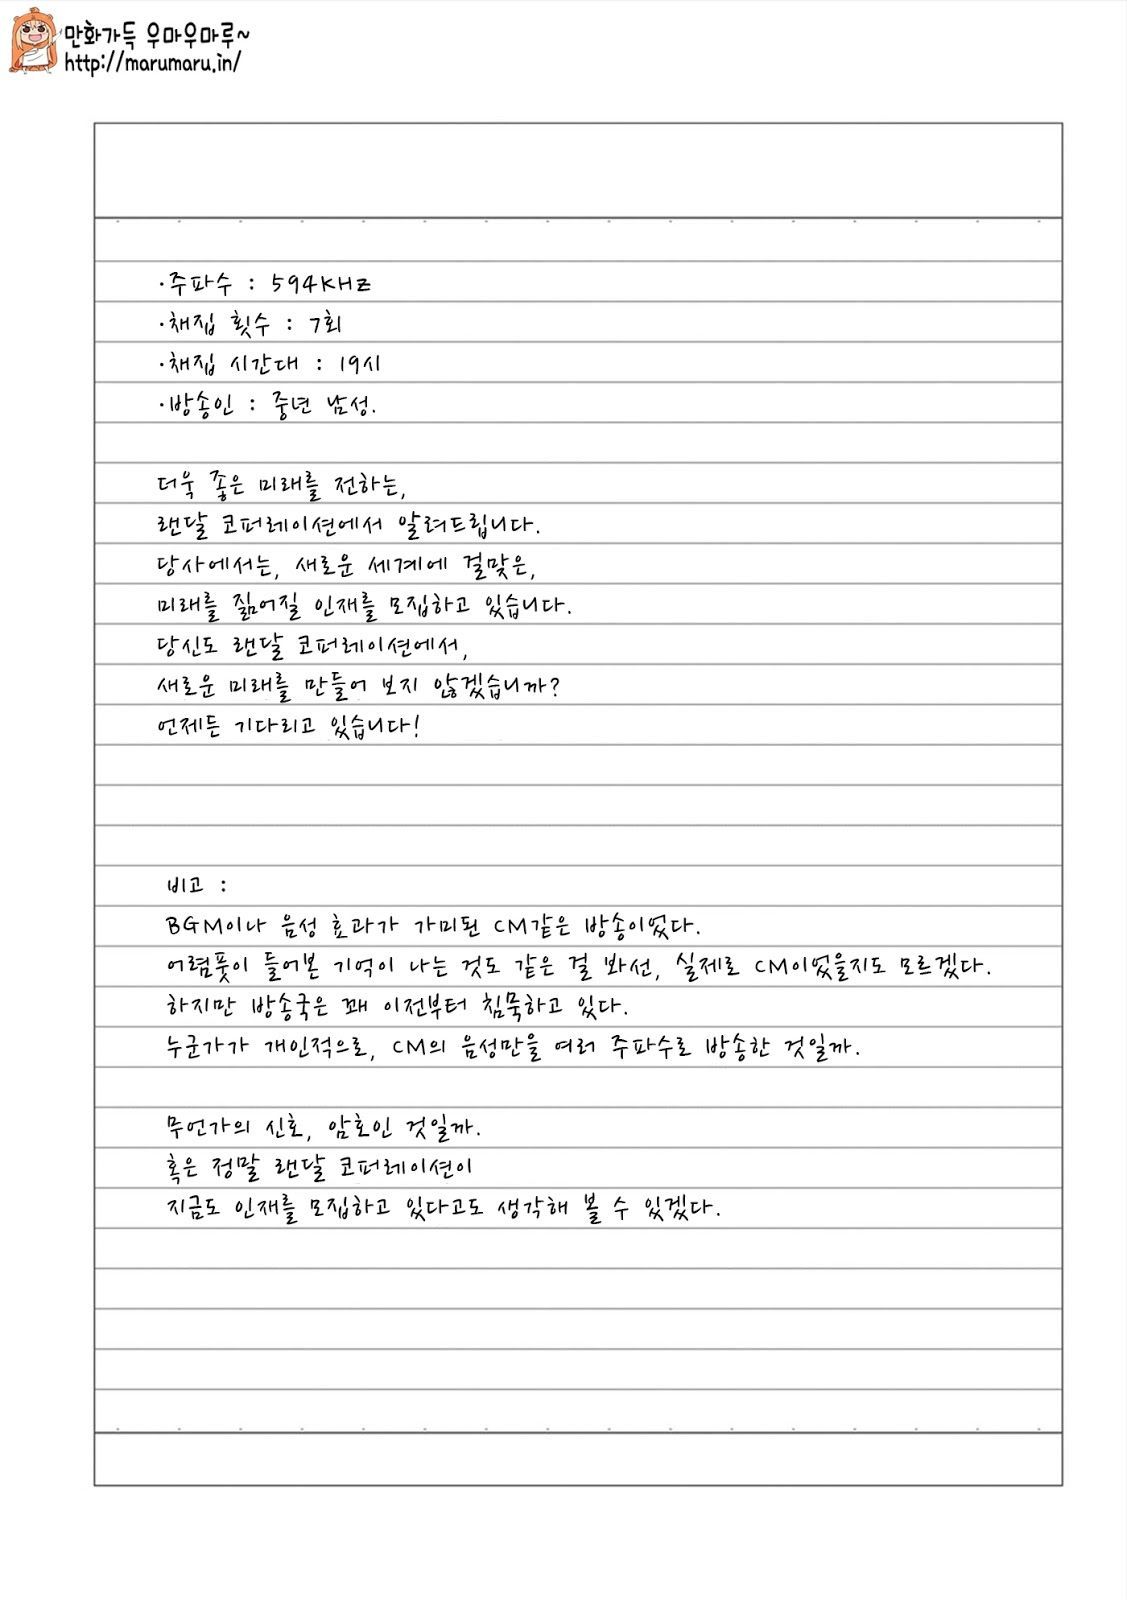 만화가득 우마우마루~
http://marumaru.in/
·주파수 : 594KHZ
·채집 횟수 : 7회
·채집 시간대 : 19시
·방송인 : 중년 남성.
더욱 좋은 미래를 전하는,
랜달 코퍼레이션에서 알려드립니다.
당사에서는, 새로운 세계에 걸맞은,
미래를 짊어질 인재를 모집하고 있습니다.
당신도 랜달 코퍼레이션에서,
새로운 미래를 만들어 보지 않겠습니까?
언제든 기다리고 있습니다!
비고 :
BGM이나 음성 효과가 가미된 CM같은 방송이었다.
어렴풋이 들어본 기억이 나는 것도 같은 걸 봐선, 실제로 CM이었을지도 모르겠다.
하지만 방송국은 꽤 이전부터 침묵하고 있다.
누군가가 개인적으로, CM의 음성만을 여러 주파수로 방송한 것일까.
무언가의 신호, 암호인 것일까.
혹은 정말 랜달 코퍼레이션이
지금도 인재를 모집하고 있다고도 생각해 볼 수 있겠다.